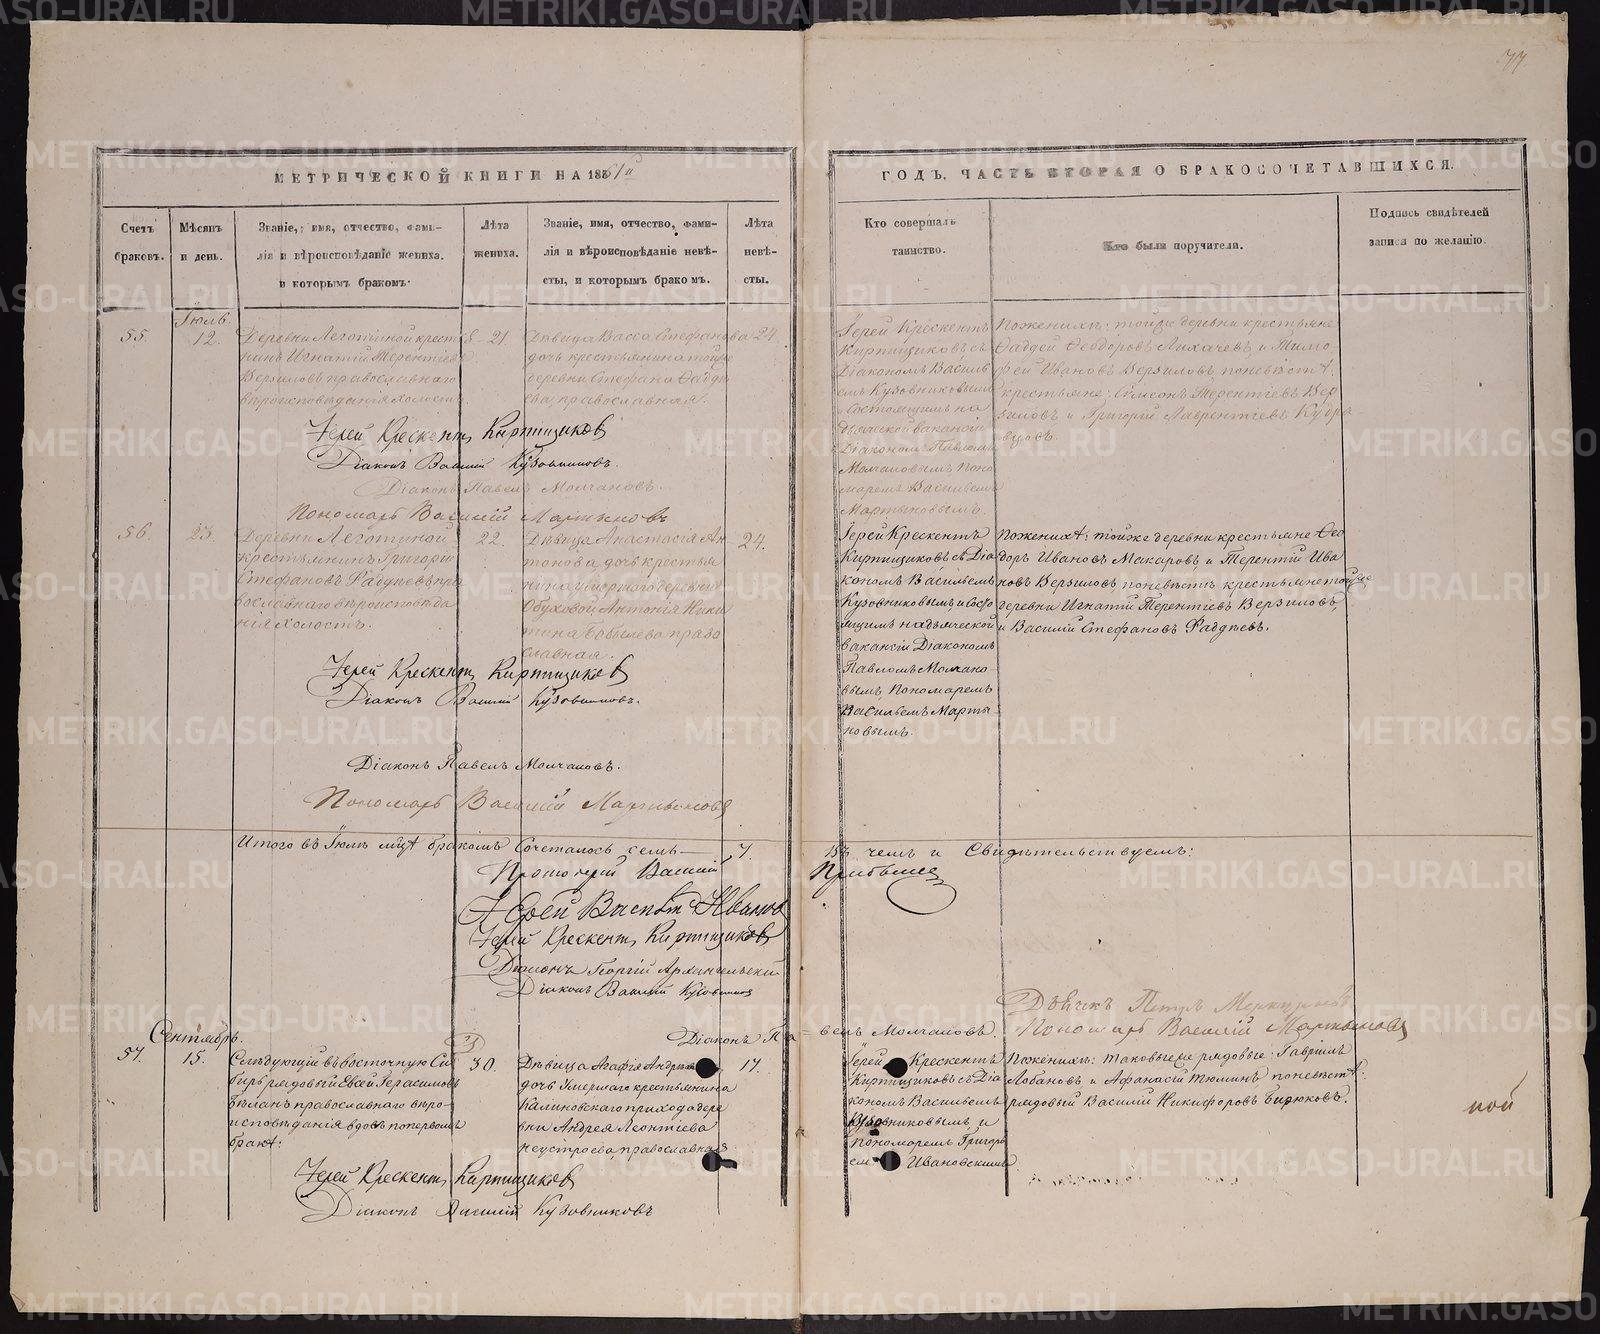 77
МЕТРИЧЕСКОЙ КНИГИ НА 1861й
ГОДЪ, ЧАСТЬ ВТОРАЯ О БРАКОСОЧЕТАВШИХСЯ.
Счетъ
браковъ.
Мѣсяцъ
и день.
Званіе, имя, отчество, фами-
лія и вѣроисповѣданіе жениха.
и которымъ бракомъ.
Лѣта
жениха.
Званіе, имя, отчество, фами-
лія и вѣроисповѣданіе невѣ-
сты, и которымъ бракомъ.
Лѣта
невѣ-
сты.
Кто совершалъ
таинство.
Кто были поручители.
Подпись свидѣтелей
записи по желанію.
Іюль
55.
12.
Деревни Леготиной крестья
нинъ Игнатій Терентіевъ
Верзиловъ православнаго
вѣроисповѣданія холостъ.
21.
Дѣвица Васса Стефанова
дочь крестьянина тойже
деревни Стефана Фадде
ева, православная.
24.
Іерей Крескентъ
Киртициковъ съ
Діакономъ Василь
емъ Кузовниковымъ
и состоящимъ на
дьяческой ваканіи
Діакономъ Павломъ
Молчановымъ Поно
маремъ Васильемъ
Мартыновымъ.
Поженихѣ: тойже деревни крестьяне
Фаддей Ѳеодоровъ Лихачевъ, и Тимо
фей Ивановъ Верзиловъ поневѣстѣ:
крестьяне: Симеонъ Терентіевъ Вер
зиловъ и Григорій Лаврентіевъ Кудря
вцовъ.
Іерей Крескентъ Киртициковъ
Діаконъ Василій Кузовниковъ.
Діаконъ Павелъ Молчановъ.
Пономарь Василій Мартыновъ
56.
23.
Деревни Леготиной
крестьянинъ Григорій
Стефановъ Фаддѣевъ пра
вославнаго вѣроисповѣда
нія холостъ.
22.
Дѣвица Анастасія Ан
тонова, дочь крестья
нина умершаго деревни
Обуховой Антонія Ники
тина Бобылева право
славная.
24.
Іерей Крескентъ
Киртициковъ съ Діа
кономъ Васильемъ
Кузовниковымъ и состо
ящимъ надьяческой
ваканіи Діакономъ
Павломъ Молчано
вымъ Пономаремъ
Васильемъ Марты
новымъ.
Поженихѣ: тойже деревни крестьяне Ѳео
доръ Ивановъ Макаровъ, и Терентій Ива
новъ Верзиловъ, поневѣстѣ крестьяне тойже
деревни Игнатій Терентіевъ Верзиловъ,
и Василій Стефановъ Фаддѣевъ.
Іерей Крескентъ Киртициковъ
Діаконъ Василій Кузовниковъ.
Діаконъ Павелъ Молчановъ.
Пономарь Василій Мартыновъ
Итого въ Іюлѣ м-цѣ бракомъ сочеталось семь — 7.
Въ чемъ и Свидѣтельствуемъ:
Протоіерей Василій
Іерей Василій Ивановъ
Іерей Крескентъ Киртициковъ
Діаконъ Георгій Архангельскій
Діаконъ Василій Кузовниковъ
Діаконъ Павелъ Молчановъ.
Дьячекъ Петръ Меркурьевъ
Пономарь Василій Мартыновъ
Сентябрь.
57.
15.
Слѣдующій въ восточную Си
бирь рядовый Евсей Герасимовъ
Бѣланъ православнаго вѣро-
исповѣданія вдовъ попервомъ
бракѣ:
30.
Дѣвица Агафія Андреева
дочь умершаго крестьянина
Калиновскаго прихода дере
вни Андрея Леонтіева
Неустроева, православная
17.
Іерей Крескентъ
Киртициковъ съ Діа
кономъ Васильемъ
Кузовниковымъ и
пономоремъ Григорь
емъ Ивановскимъ
Поженихѣ: таковыеже рядовые: Гавріилъ
Лобановъ, и Афанасій Тюминъ поневѣстѣ:
рядовый Василій Никифоровъ Бирюковъ.
ной
Іерей Крескентъ Киртициковъ
Діаконъ Василій Кузовниковъ
METRIKI.GASO-URAL.RU